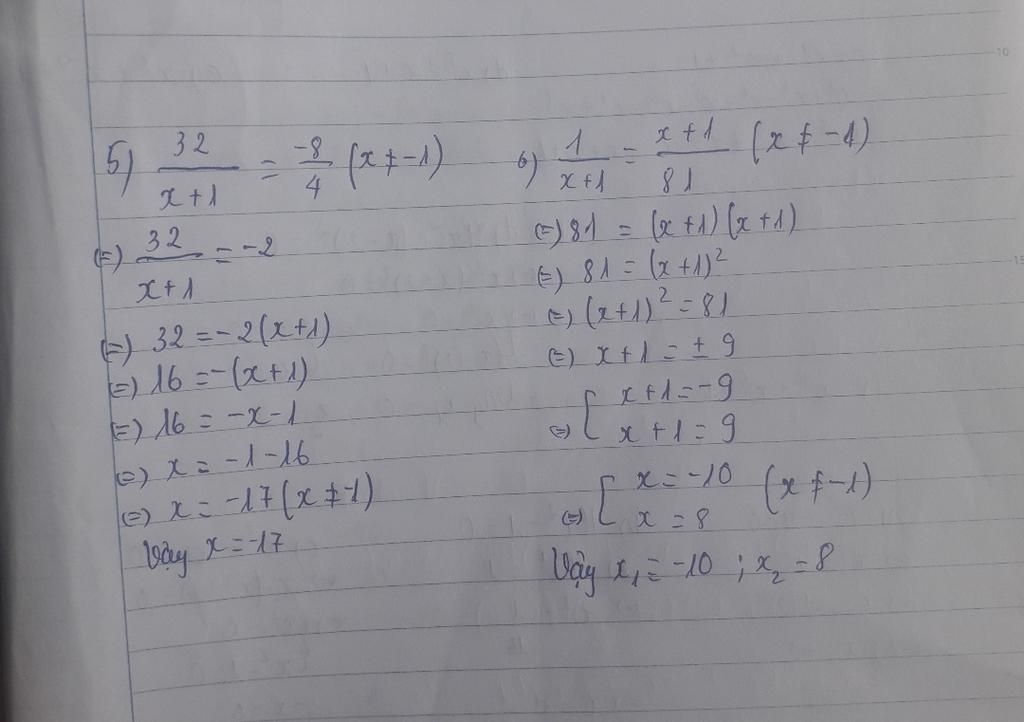 5) 32/(x+1) = -8/4 (x ≠ -1)
(=) 32/(x+1) = -2
(=) 32 = -2(x+1)
(=) 16 = -(x+1)
(=) 16 = -x-1
(=) x = -1-16
(=) x = -17 (x ≠ -1)
Vậy x = -17
6) 1/(x+1) = (x+1)/81 (x ≠ -1)
(=) 81 = (x+1)(x+1)
(=) 81 = (x+1)²
(=) (x+1)² = 81
(=) x+1 = ± 9
(=) [ x+1 = -9
x+1 = 9
(=) [ x = -10 (x ≠ -1)
x = 8
Vậy x₁ = -10 ; x₂ = 8
10
15